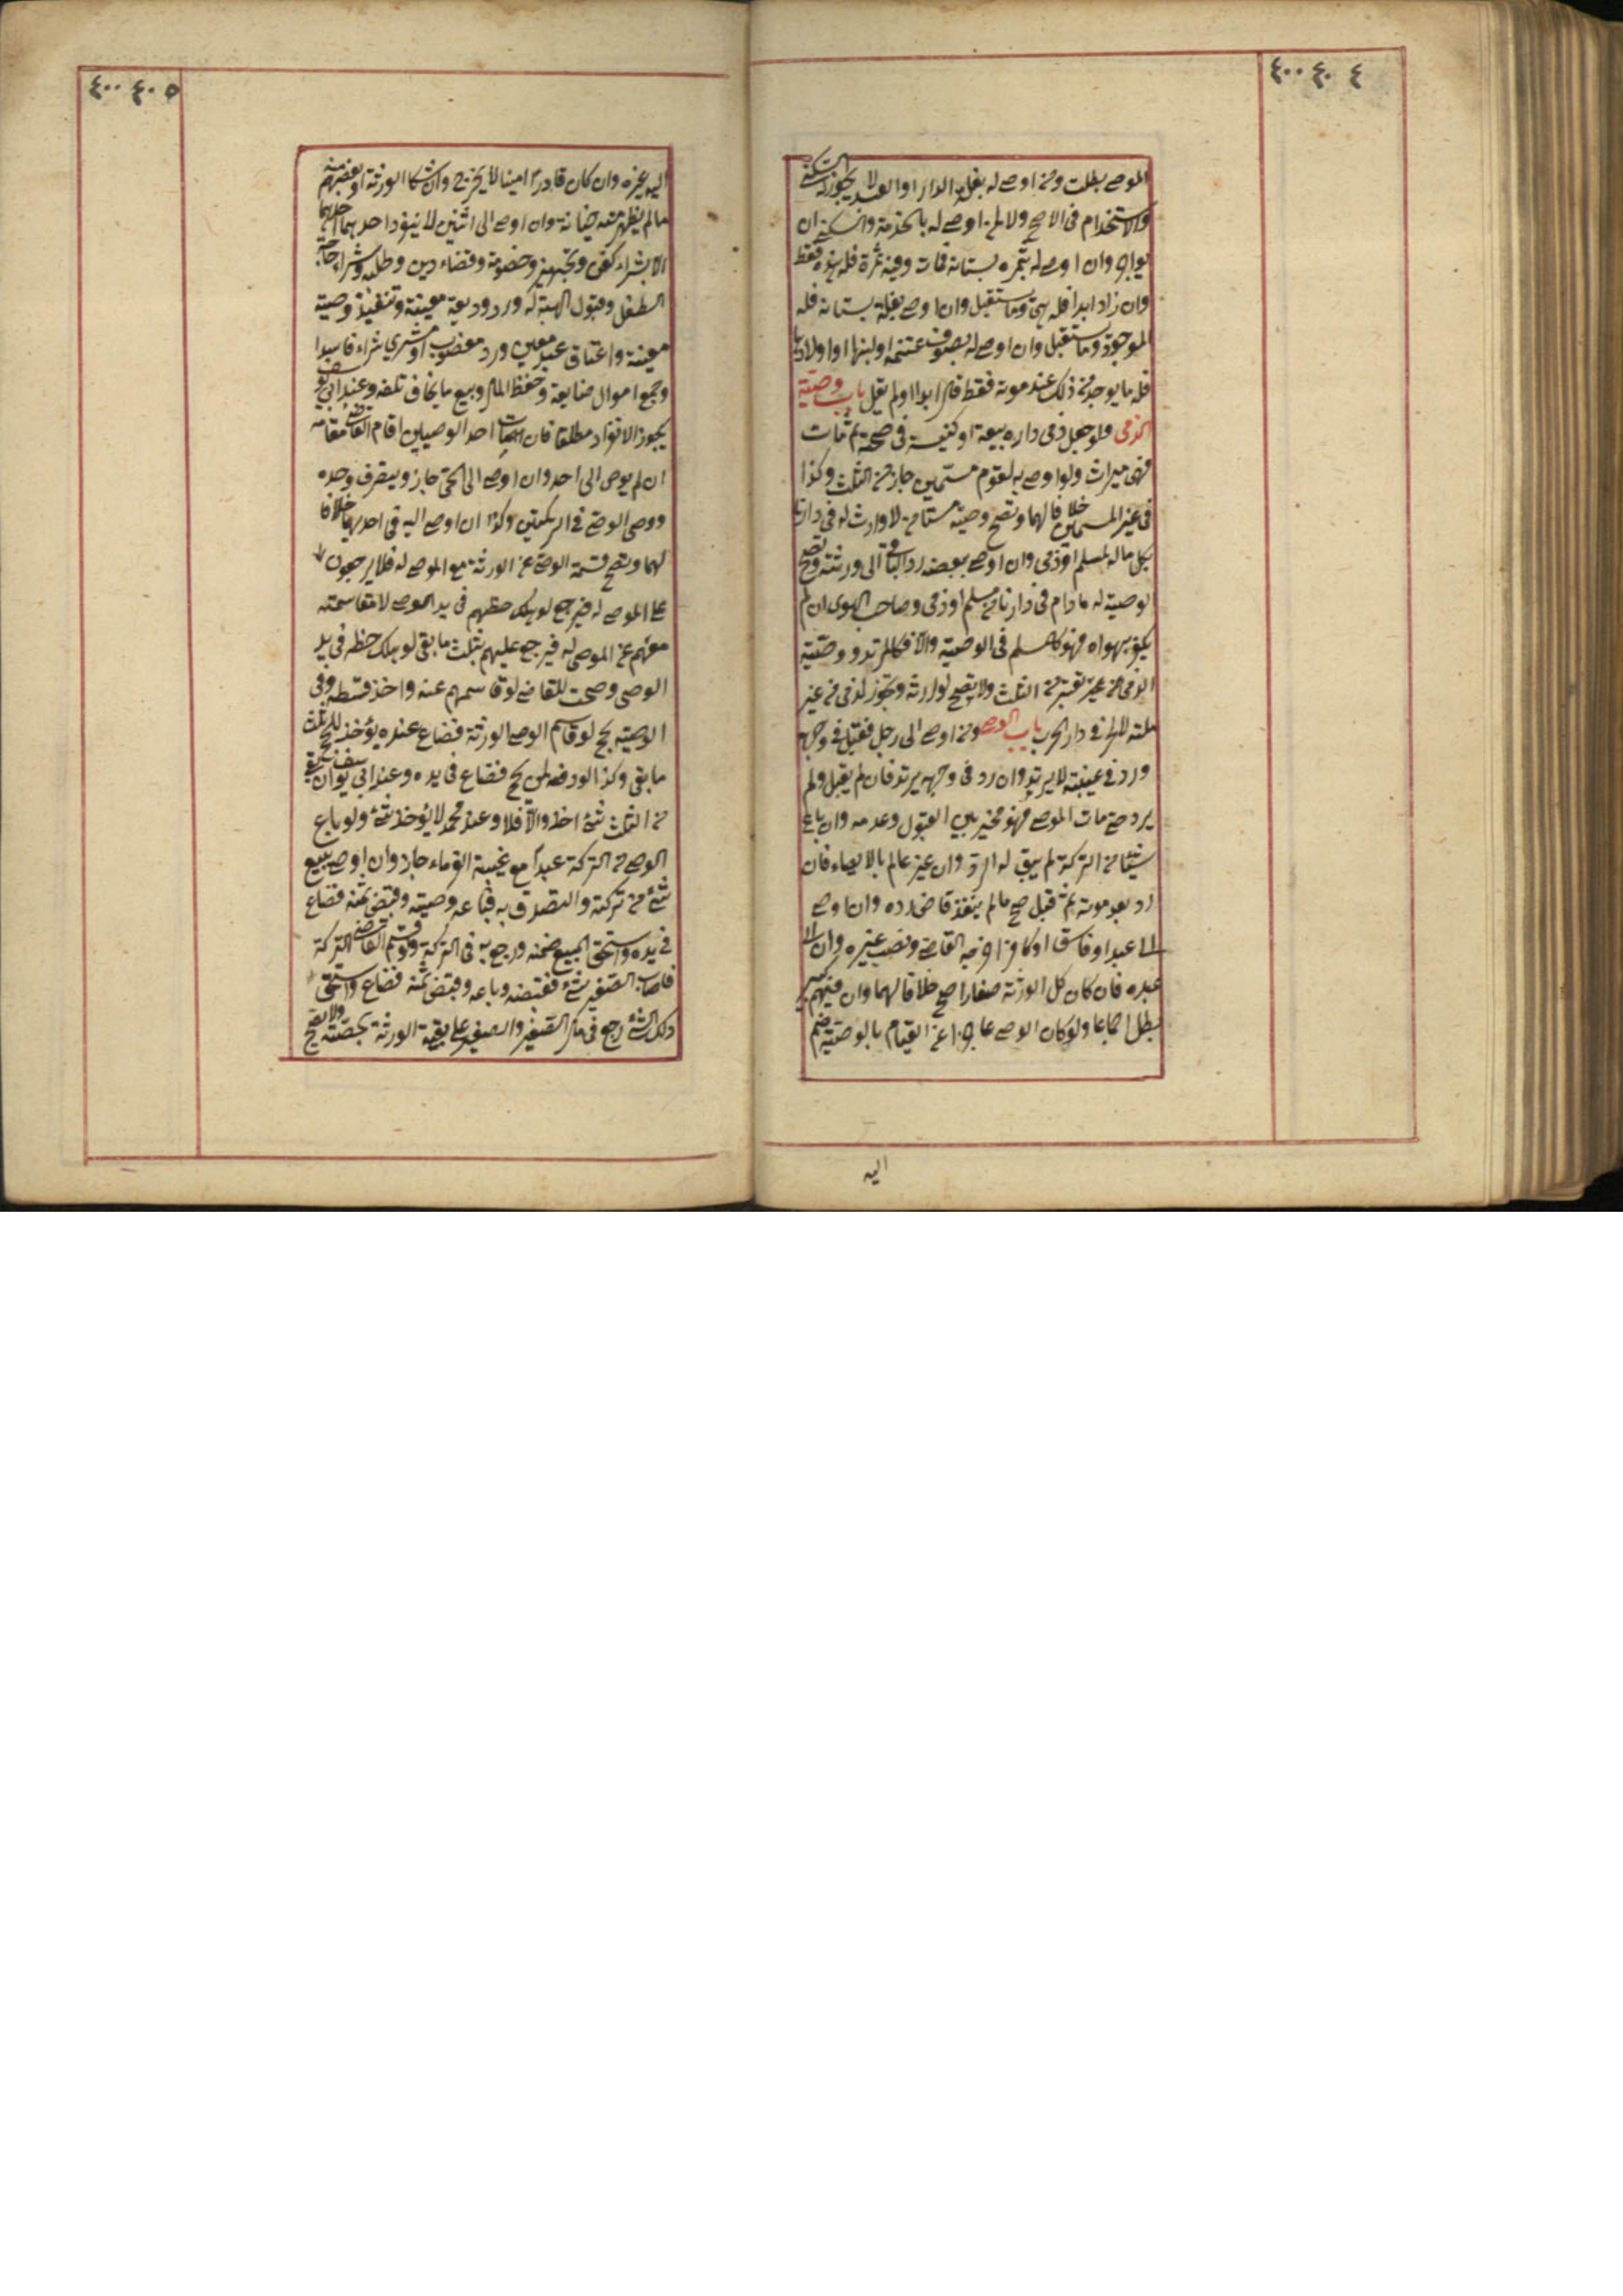 ٤٠٠ ٤٠ ٤
الموصي بطلت ومن اوصى له بغلة الدار او العبد لا يجوز له السكنى
والاستخدام في الاصح ولا لمن اوصى له بالخدمة والسكنى ان
يواجر وان اوصى له بثمرة بستانه فمات وفيه ثمرة فله هذه فقط
وان زاد ابدا فله هي وما يستقبل وان اوصى بغلة بستانه فله
الموجود وما يستقبل وان اوصى له بصوف غنمه او لبنها او اولادها
فله ما يوجد من ذلك عند موته فقط قال ابدا او لم يقل باب وصية
الذمي ولو جعل ذمي داره بيعة او كنيسة في صحته ثم مات
فهي ميراث ولو اوصى به لقوم مسمين جاز من الثلث وكذا
في غير المسمين خلافا لهما وتصح وصية مستأمن لا وارث له في دارنا
بكل ماله لمسلم او ذمي وان اوصى ببعضه رد الباقي الى ورثته وتصح
لوصية له مادام في دارنا من مسلم او ذمي وصاحب الهوى ان لم
يكفر بهواه فهو كالمسلم في الوصية والا فكالمرتد ووصية
الذمي من غير تعتبر من الثلث ولا يصح لوارثه وتجوز لذمي من غير
ملته لا لحربي في دار الحرب باب الوصي ومن اوصى الى رجل فقبل في وجهه
ورد في غيبته لا يرتد وان رد في وجهه يرتد فان لم يقبل ولم
يرد حتى مات الموصي فهو مخير بين القبول وعدمه وان باع
شيئا من التركة لم يبق له الرد وان غير عالم بالايصاء فان
رد بعد موته ثم قبل صح ما لم ينفذ قاض رده وان اوصى
الى عبد او فاسق او كافر اخرجه القاضي ونصب غيره وان الى
عبده فان كان كل الورثة صغارا صح خلافا لهما وان فيهم كبير
بطل اجماعا ولو كان الوصي عاجزا عن القيام بالوصية ضم
اليه
٤٠٠ ٤٠ ٥
اليه غيره وان كان قادرا امينا لا يخرج وان شكا الورثة او بعضهم منه
ما لم يظهر منه خيانة وان اوصى الى اثنين لا ينفرد احدهما
الا بشراء كفن وتجهيز وخصومة وقضاء دين وطلبه وشراء حاجة
الطفل وقبول الهبة له ورد وديعة معينة وتنفيذ وصية
معينة واعتاق عبد معين ورد مغصوب او مشري شراء فاسدا
وجمع اموال ضايعة وحفظ المال وبيع ما يخاف تلفه وعند ابي يوسف
يجوز الانفراد مطلقا فان مات احد الوصيين اقام القاضي مقامه
ان لم يوص الى احد وان اوصى الى الحي جاز ويتصرف وحده
ووصي الوصي في التركتين وكذا ان اوصى اليه في احديهما خلافا
لهما وتصح قسمة الوصي عن الورثة مع الموصى له فلا يرجعون
على الموصى له فيرجع لو هلك حظهم في يد الموصي لا مقاسمته
معهم عن الموصى له فيرجع عليهم بثلث ما بقي لو هلك حظه في يد
الوصي وصحت للقاضي لو قاسمهم عنه واخذ قسطه وفي
الوصية بحج لو قاسم الوصي الورثة فضاع عنده يؤخذ للحج ثلث
ما بقي وكذا لو دفعه لمن يحج فضاع في يده وعند ابي يوسف ان بقي
من الثلث شئ اخذ والا فلا وعند محمد لا يؤخذ شئ ولو باع
الوصي من التركة عبدا مع غيبة الغرماء جاز وان اوصى ببيع
شئ من تركته والتصدق به فباعه وصيه وقبض ثمنه فضاع
في يده واستحق المبيع ضمنه ورجع به في التركة ولو قسم القاضي التركة
فاصاب الصغير شئ فقبضه وباعه وقبض ثمنه فضاع واستحق
ذلك الشئ رجع في مال الصغير والصغير على بقية الورثة بحصته ولا يصح